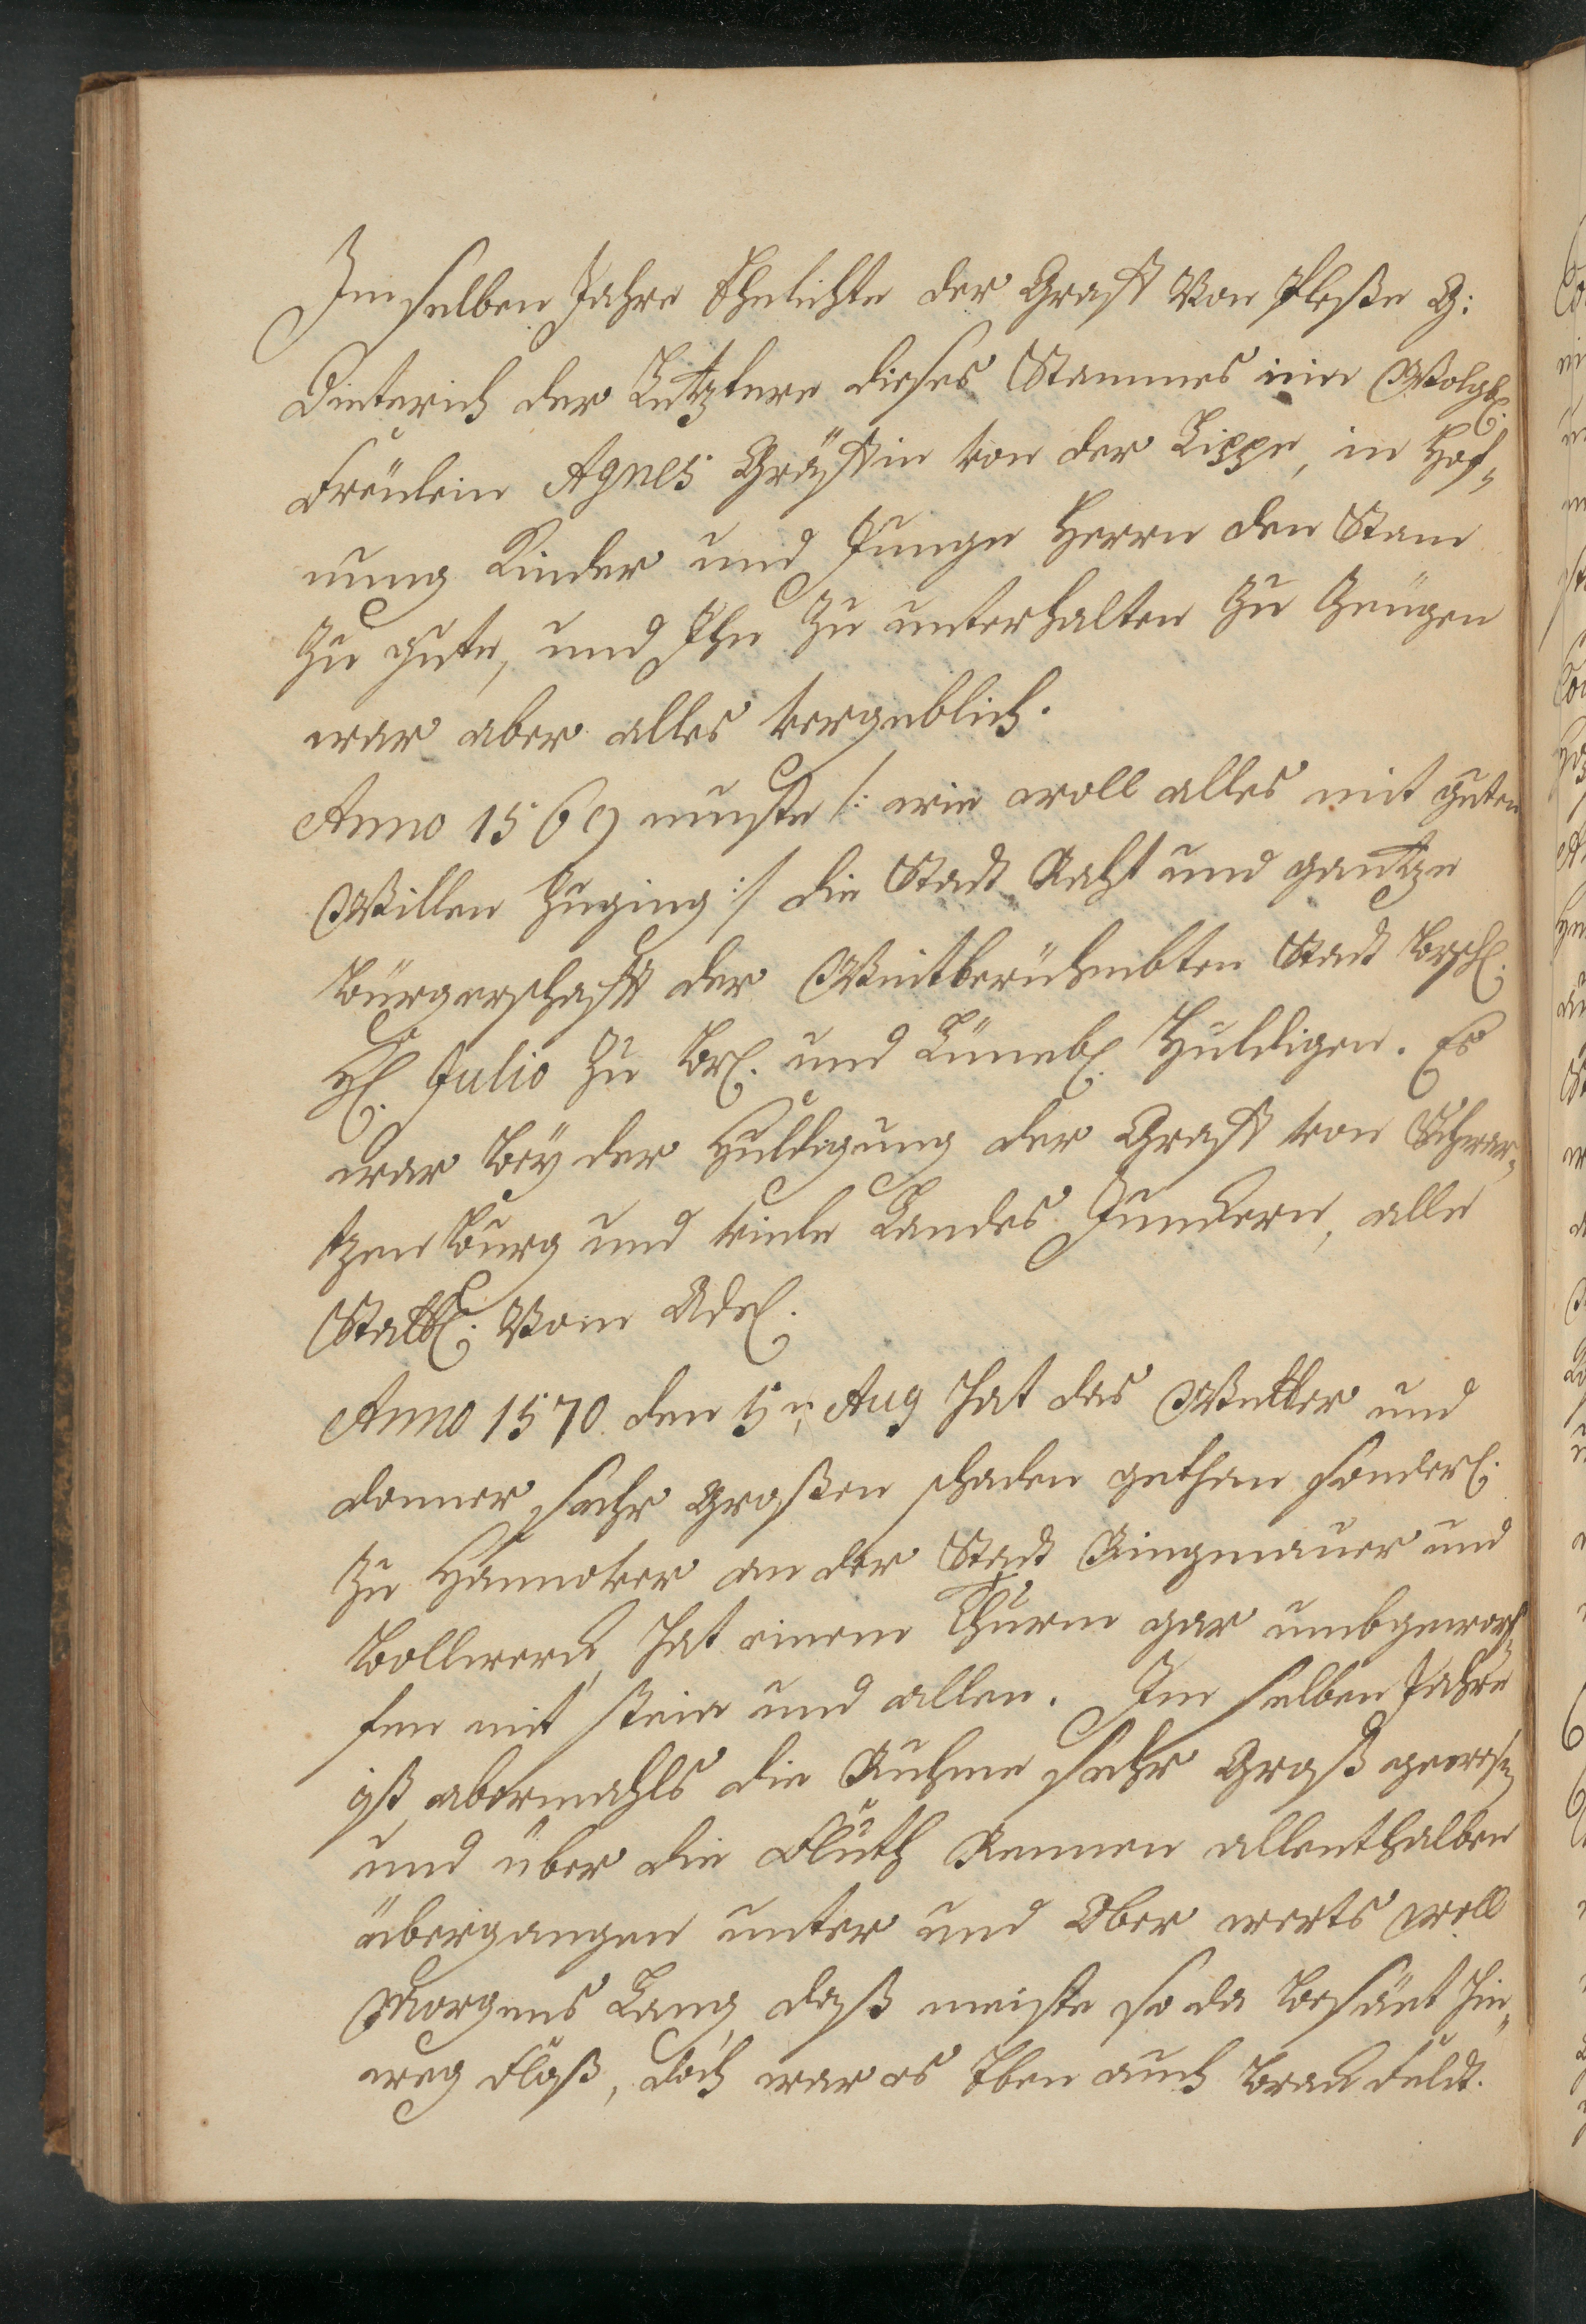 Im selben Jahre Ehelichte der Graff Von Pleße G:
Dieterich der Letztere dieses Stammes ein Wolgb.
Freulein Agnes Gräffin von der Lippe, in Hof-
nung Kinder und Junge Herrn den Stam
zu gute, und Ihn zu unterhalten zu Zeugen
war aber alles vergeblich.
Anno 1569 muste /: wie woll alles mit guten
Willen zuging :/ die Stadt Raht und gantze
Bürgerschafft der Weitberühmbten Stadt Brschl.
H. Julio zu Br. und Lüneb. Huldigen. Es
war Bey der Huldigung der Graff von Schwar-
tzenBurg und viele Landes Junckern, alle
Stattl. Vom Adel.
Anno 1570. den 5n. Aug hat das Wetter und
donner sehr großen schaden gethan sonderl.
zu Hannover an der Stadt Ringmauer und
Bollwerck, hat einem Thurm gar umbgeworf-
fen mit stein und allen. Im selben Jahre
ist abermahls die Ruhme sehr Groß gewesen
und über die Fluth Rennen allenthalben
übergangen unter und Ober werts woll
Morgens Lang, daß meiste so da besäet hin-
weg Floß, doch war es Eben auch Brack Feldt.